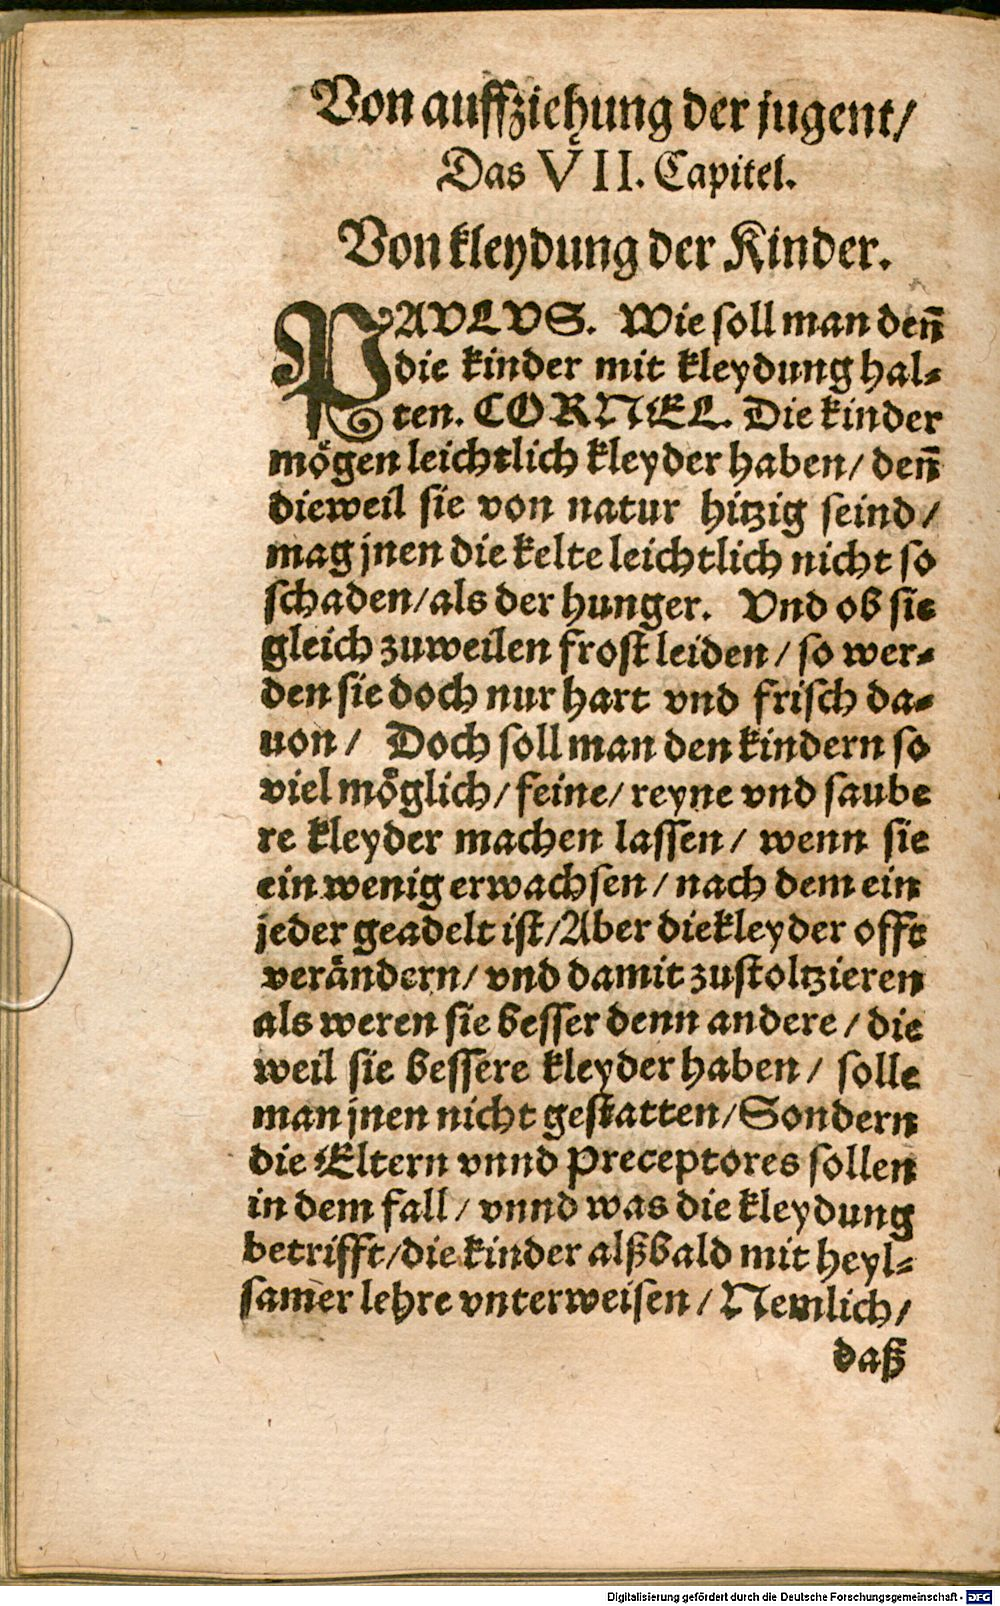 Von auffziehung der jugent/
Das VII. Capitel.
Von kleydung der Kinder.
PAVLVS. Wie soll man deñ
die kinder mit kleydung hal⸗
ten. CORNEL. Die kinder
mögen leichtlich kleyder haben/ deñ
dieweil sie von natur hitzig seind/
mag jnen die kelte leichtlich nicht so
schaden/als der hunger. Vnd ob sie
gleich zuweilen frost leiden/ so wer⸗
den sie doch nur hart vnd frisch da⸗
uon/ Doch soll man den kindern so
viel möglich/ feine/ reyne vnd saube
re kleyder machen lassen/ wenn sie
ein wenig erwachsen/ nach dem ein
jeder geadelt ist/Aber die kleyder offt
verändern/ vnd damit zustoltzieren
als weren sie besser denn andere/ die
weil sie bessere kleyder haben/ solle
man jnen nicht gestatten/Sondern
die Eltern vnnd Preceptores sollen
in dem fall/ vnnd was die kleydung
betrifft/die kinder alßbald mit heyl⸗
samer lehre vnterweisen/ Nemlich/
daß
Digitalisierung gefördert durch die Deutsche Forschungsgemeinschaft - DFG